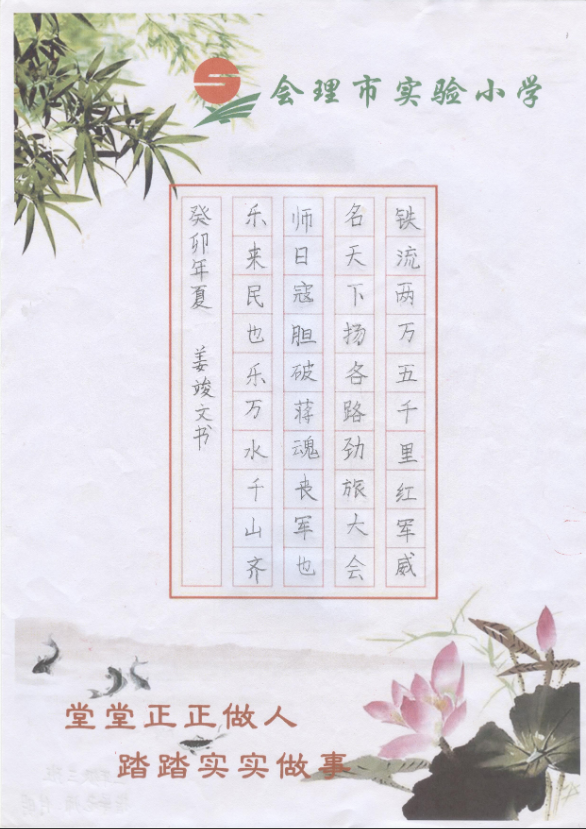 会理市实验小学
铁流两万五千里红军威
名天下扬各路劲旅大会
师日寇胆破蒋魂丧军也
乐来民也乐万水千山齐
癸卯年夏 姜竣文书
堂堂正正做人
踏踏实实做事